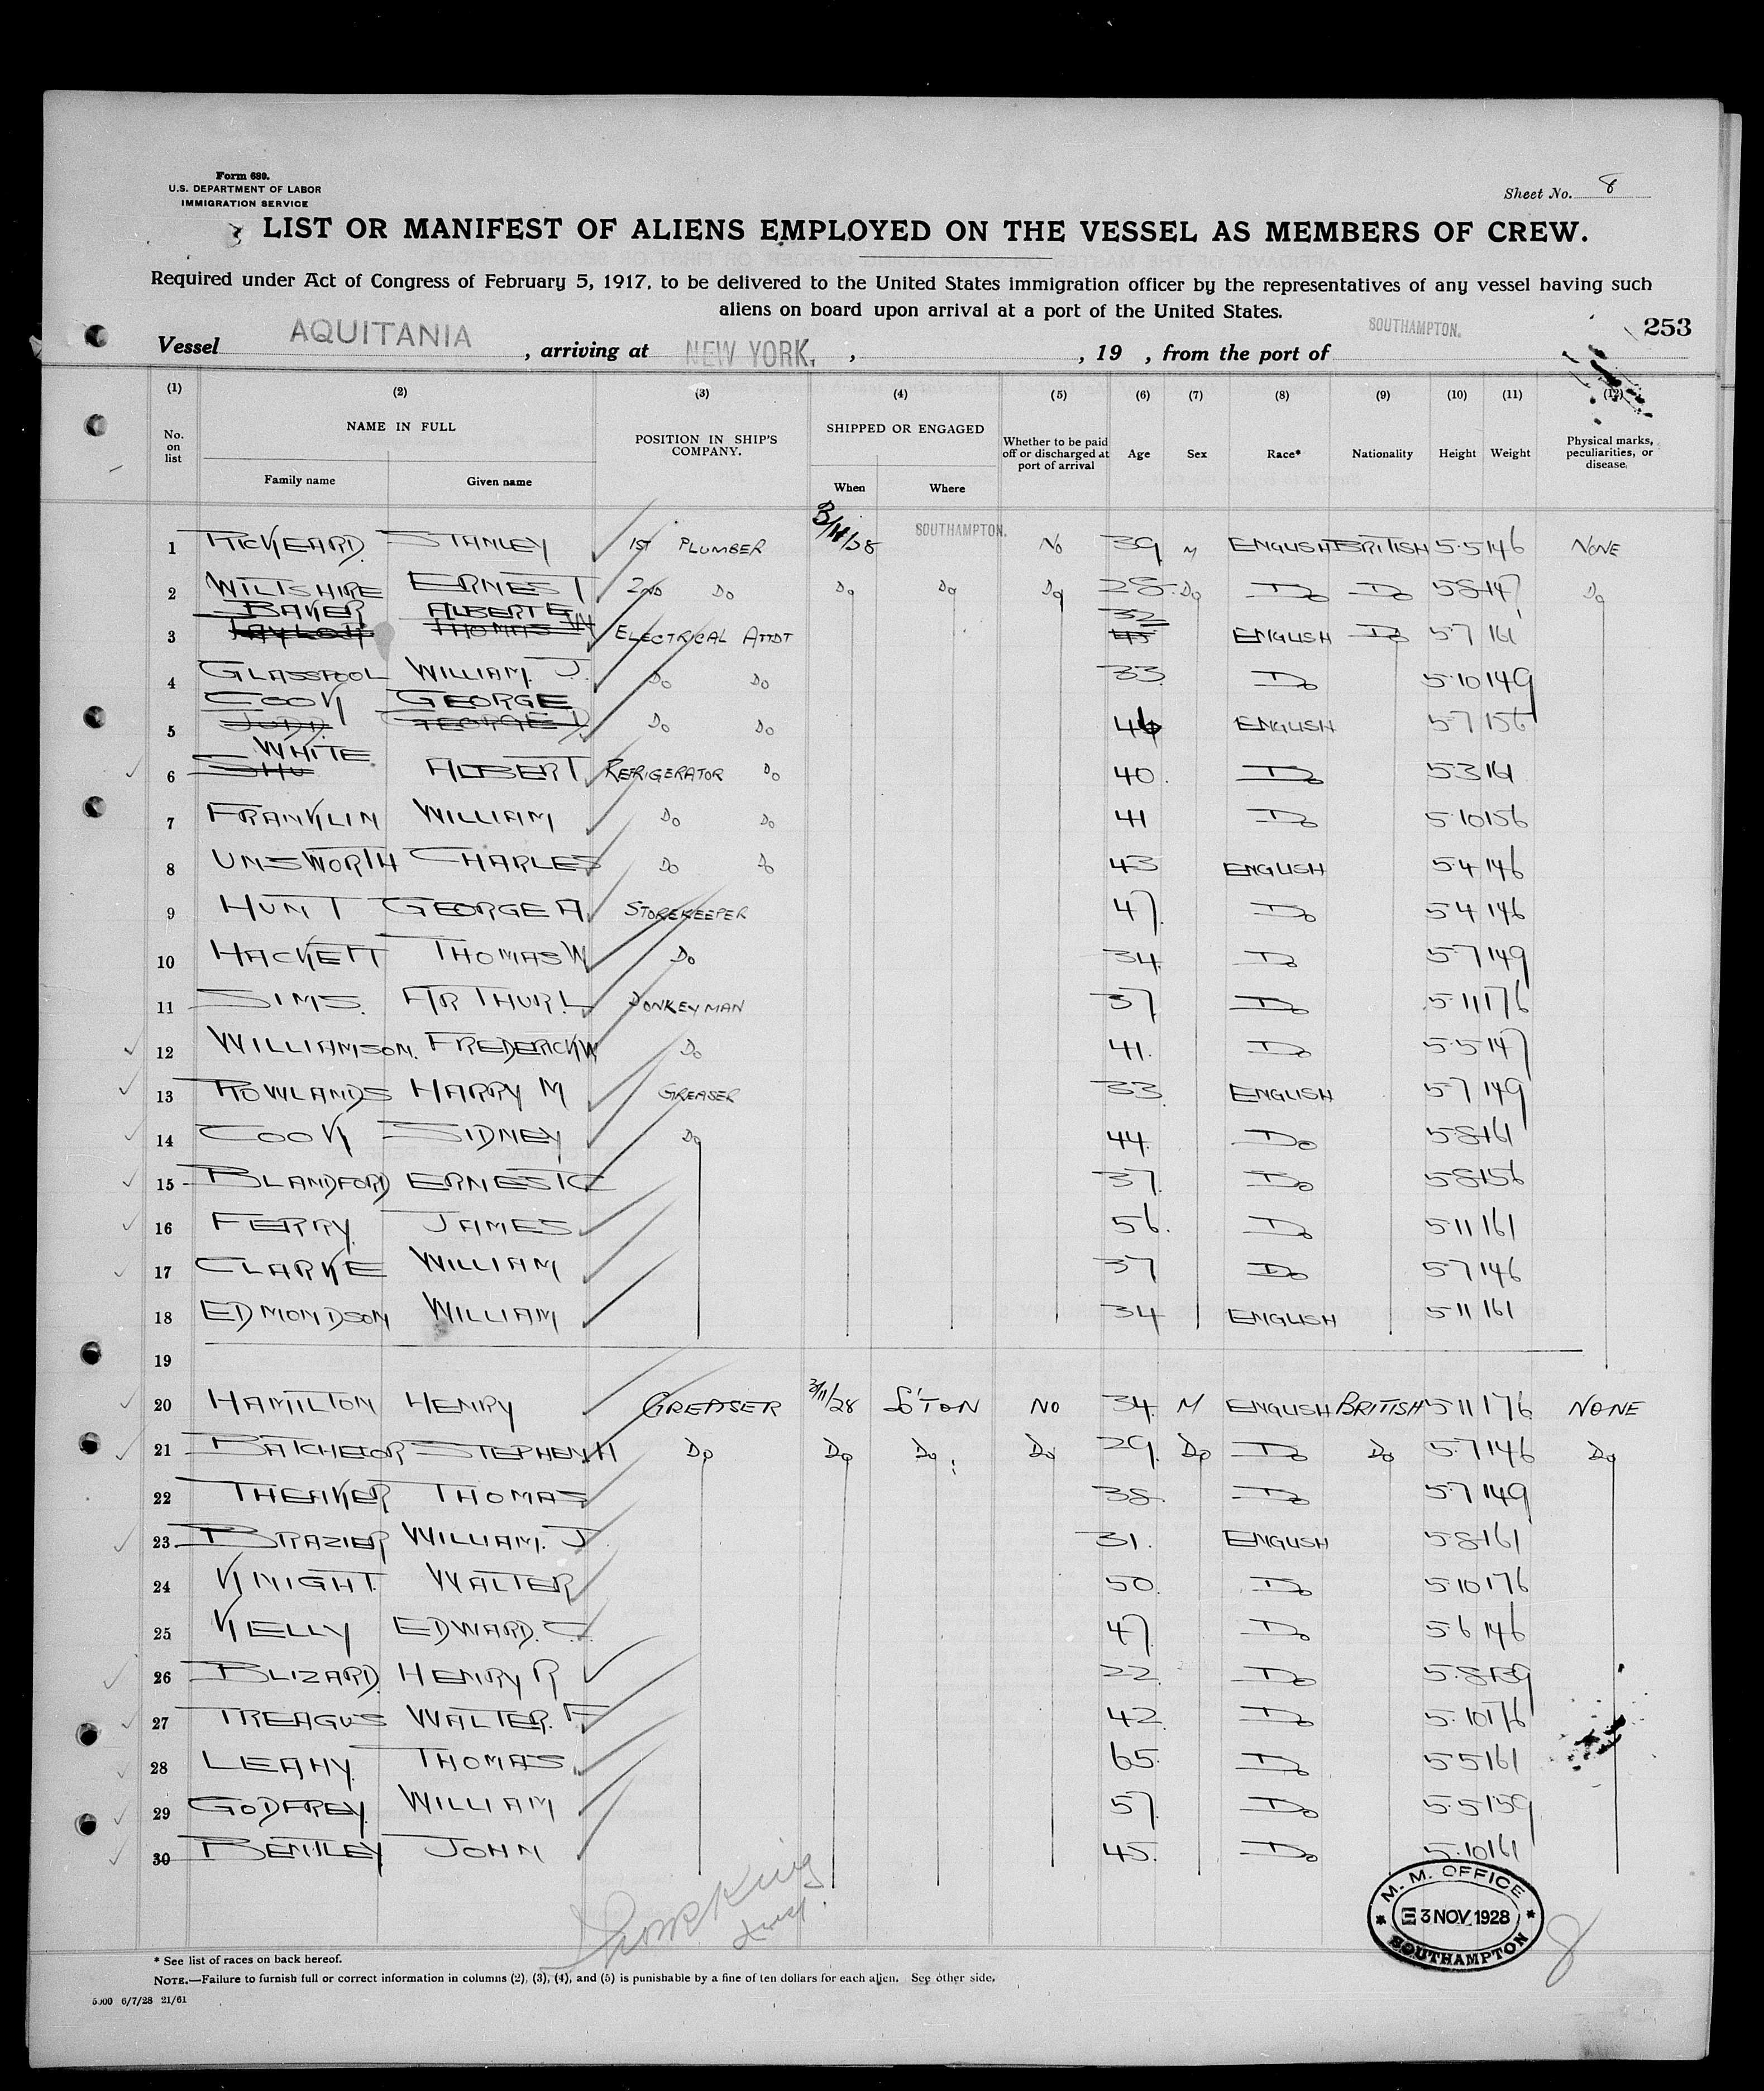 Form 680.
U.S. DEPARTMENT OF LABOR
IMMIGRATION SERVICE
Sheet No. 8
LIST OR MANIFEST OF ALIENS EMPLOYED ON THE VESSEL AS MEMBERS OF CREW.
Required under Act of Congress of February 5, 1917, to be delivered to the United States immigration officer by the representatives of any vessel having such
aliens on board upon arrival at a port of the United States.
253
Vessel AQUITANIA, arriving at NEW YORK., , 19 , from the port of SOUTHAMPTON.
(1) (2) (3) (4) (5) (6) (7) (8) (9) (10) (11) (12)
No. on list NAME IN FULL Family name Given name POSITION IN SHIP'S COMPANY. SHIPPED OR ENGAGED When Where Whether to be paid off or discharged at port of arrival Age Sex Race* Nationality Height Weight Physical marks, peculiarities, or disease
1 RICKEARD STANLEY 1ST PLUMBER 3/11/28 SOUTHAMPTON. NO 39 M ENGLISH BRITISH 5.5 146 NONE
2 WILTSHIRE ERNEST 2ND DO DO DO DO 28 DO DO DO 5.8 147 DO
BAKER ALBERT E W 32
3 TAYLOR THOMAS ELECTRICAL ATTDT 45 ENGLISH DO 5.7 161
4 GLASSPOOL WILLIAM. J. DO DO 33 DO 5.10 149
COOK GEORGE
5 JUDD. GEORGE D. DO DO 46 ENGLISH 5.7 156
WHITE
6 ALBERT REFRIGERATOR DO 40. DO 5.3 161
7 FRANKLIN WILLIAM DO DO 41 DO 5.10 156
8 UNSWORTH CHARLES DO DO 43 ENGLISH 5.4 146
9 HUNT GEORGE A. STOREKEEPER 47. DO 5.4 146
10 HACKETT THOMAS W DO 34. DO 5.7 149
11 SIMS. ARTHUR L DONKEYMAN 37 DO 5.11 176
12 WILLIAMSON. FREDERICK W DO 41. DO 5.5 147
13 ROWLANDS HARRY M GREASER 33. ENGLISH 5.7 149
14 COOK SIDNEY DO 44. DO 5.8 161
15 BLANDFORD ERNEST C 37. DO 5.8 156
16 FERRY. JAMES 56. DO 5.11 161
17 CLARKE WILLIAM 37 DO 5.7 146
18 EDMONDSON WILLIAM 34 ENGLISH 5.11 161
19
20 HAMILTON HENRY GREASER 3/11/28 SO'TON NO 34. M ENGLISH BRITISH 5.11 176 NONE
21 BATCHELOR STEPHEN H DO DO DO DO 29. DO DO DO 5.7 146 DO
22 THEAKER THOMAS 38. DO 5.7 149
23 BRAZIER WILLIAM. J 31. ENGLISH 5.8 161
24 KNIGHT. WALTER 50. DO 5.10 176
25 KELLY EDWARD. C. 47. DO 5.6 146
26 BLIZARD. HENRY R 22. DO 5.8 139
27 TREAGUS WALTER. F 42. DO 5.10 176
28 LEAHY. THOMAS. 65. DO 5.5 161
29 GODFREY. WILLIAM 57. DO 5.5 159
30 BENTLEY JOHN 45. DO 5.10 161
M. M. OFFICE
3 NOV 1928
SOUTHAMPTON
8
* See list of races on back hereof.
NOTE.—Failure to furnish full or correct information in columns (2), (3), (4), and (5) is punishable by a fine of ten dollars for each alien. See other side.
5000 6/7/28 21/61